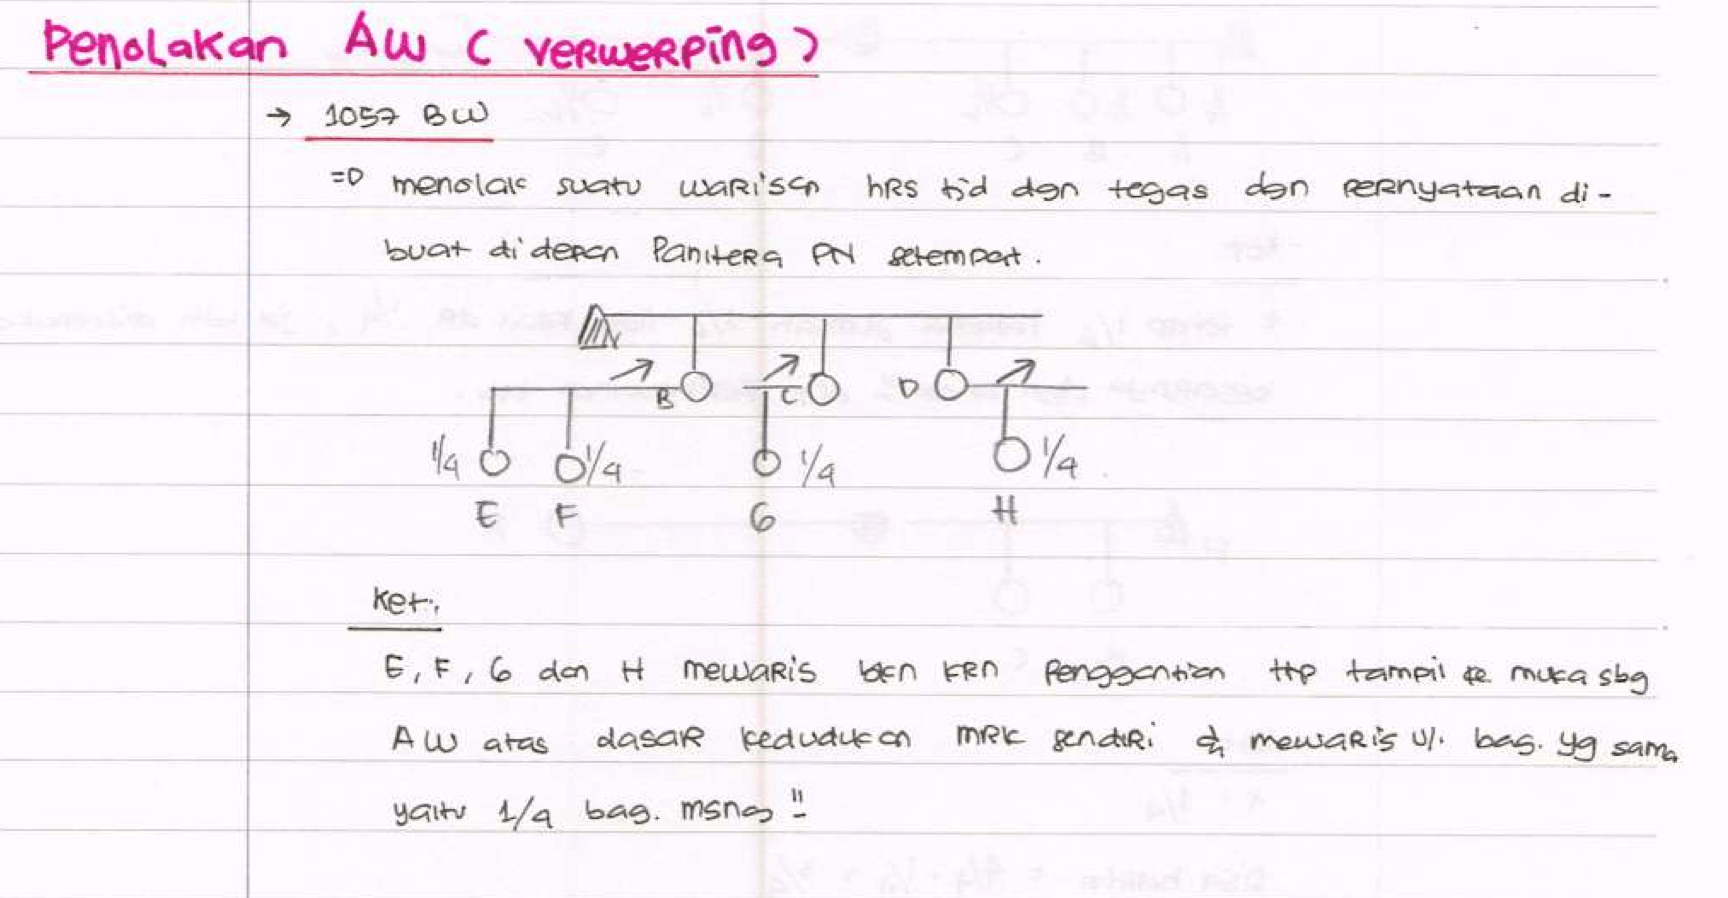 Penolakan AW ( verwerping )
→ 1057 BW
=D menolak suatu warisan hrs tjd dgn tegas dgn pernyataan di-
buat di depan Panitera PN setempat.
B C D
1/4 1/4 1/4 1/4
E F G H
Ket.
E, F, G dan H mewaris bkn krn Penggantian ttp tampil ke muka sbg
AW atas dasar kedudukan mrk sendiri & mewaris u/. bag. yg sama
yaitu 1/4 bag. msng"